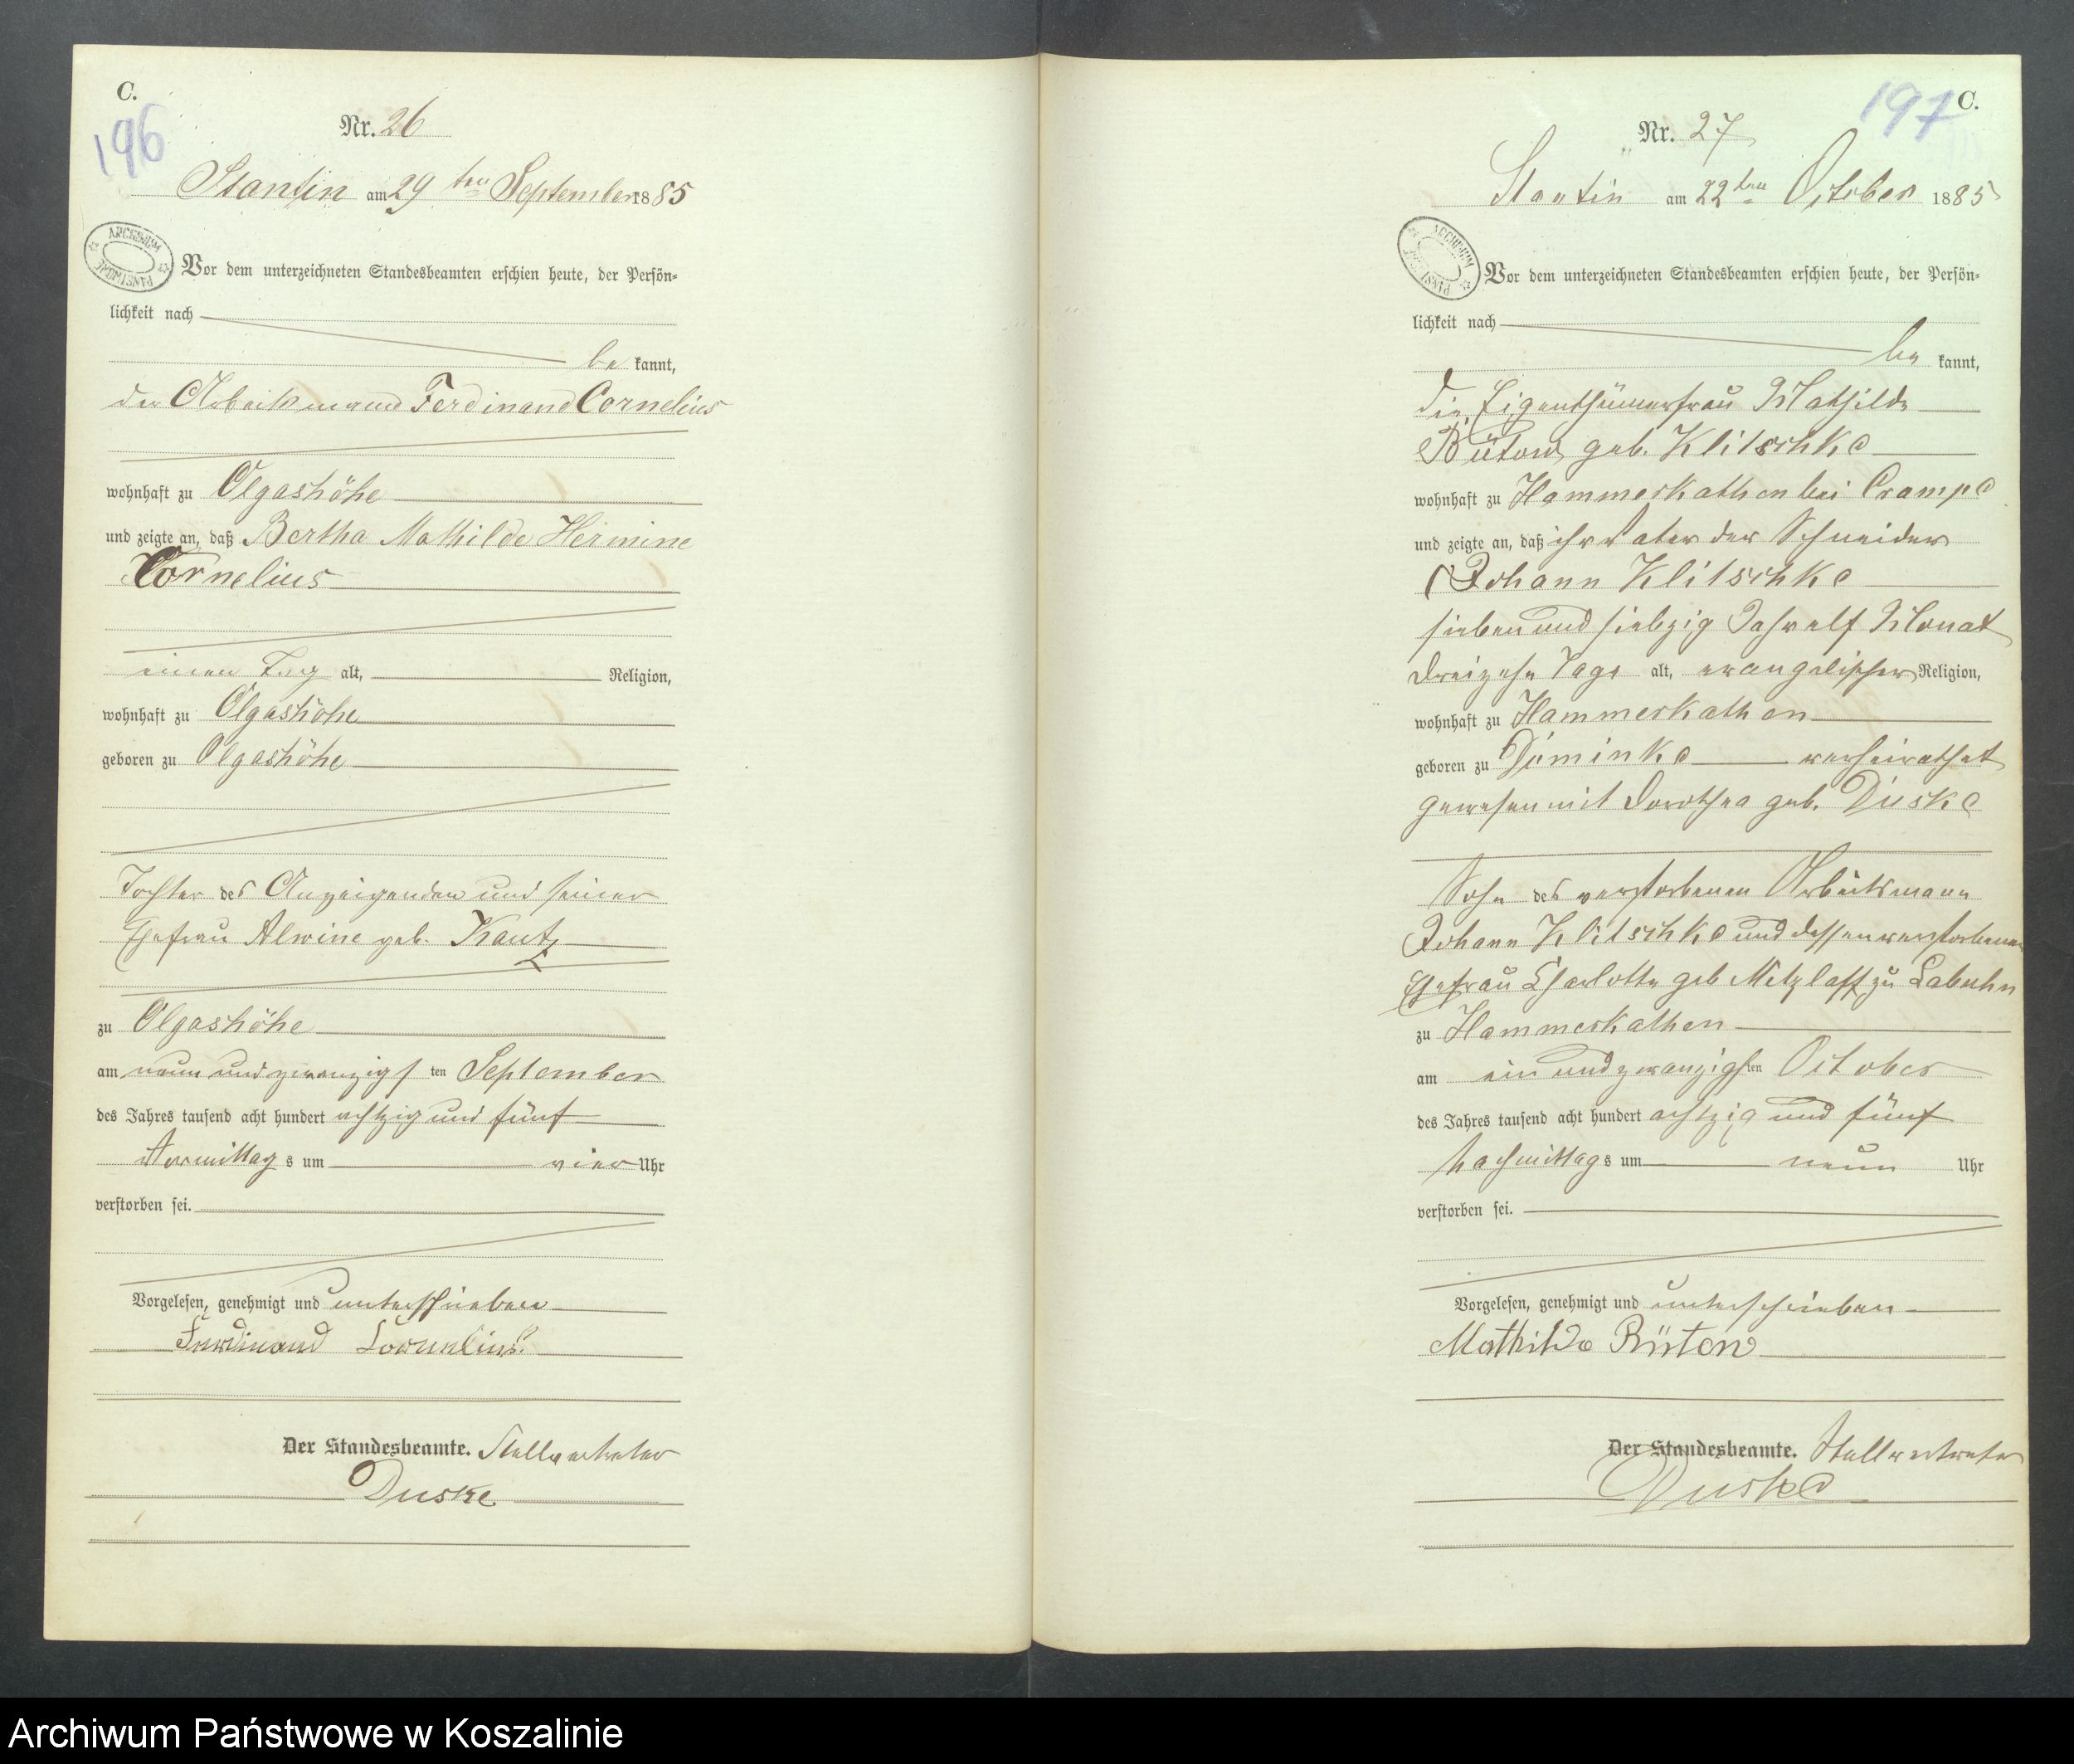 C.
196
Nr. 26
Stantin am 29 ten September 1885
Vor dem unterzeichneten Standesbeamten erschien heute, der Persön-
lichkeit nach
be kannt,
der Arbeitsmann Ferdinand Cornelius
wohnhaft zu Olgashöhe
und zeigte an, daß Bertha Mathilde Hermine
Cornelius
einen Tag alt, Religion,
wohnhaft zu Olgashöhe
geboren zu Olgashöhe
Tochter des Anzeigenden und seiner
Ehefrau Alwine geb. Kautz
zu Olgashöhe
am neun und zwanzigs ten September
des Jahres tausend acht hundert achtzig und fünf
Vormittag s um vier Uhr
verstorben sei.
Vorgelesen, genehmigt und unterschrieben
Ferdinand Cornelius
Der Standesbeamte. Stellvertreter
Duske
197
C.
Nr. 27
Stantin am 22 ten October 1885
Vor dem unterzeichneten Standesbeamten erschien heute, der Persön-
lichkeit nach
be kannt,
die Eigenthümerfrau Mathilde
Bütow geb. Klitschke
wohnhaft zu Hammerkathen bei Crampe
und zeigte an, daß ihr Vater der Schneider
Johann Klitschke
sieben und siebzig Jahr elf Monat
dreizehn Tage alt, evangelischer Religion,
wohnhaft zu Hammerkathen
geboren zu verheirathet
gewesen mit Dorothea geb. Duske
Sohn des verstorbenen Arbeitsmann
Johann Klitschke und dessen verstorbenen
Ehefrau Charlotte geb Metzlaff zu Labuhn
zu Hammerkathen
am ein und zwanzigsten October
des Jahres tausend acht hundert achtzig und fünf
Nachmittag s um neun Uhr
verstorben sei.
Vorgelesen, genehmigt und unterschrieben
Mathilde Bütow
Der Standesbeamte. Stellvertreter
Duske
Archiwum Państwowe w Koszalinie